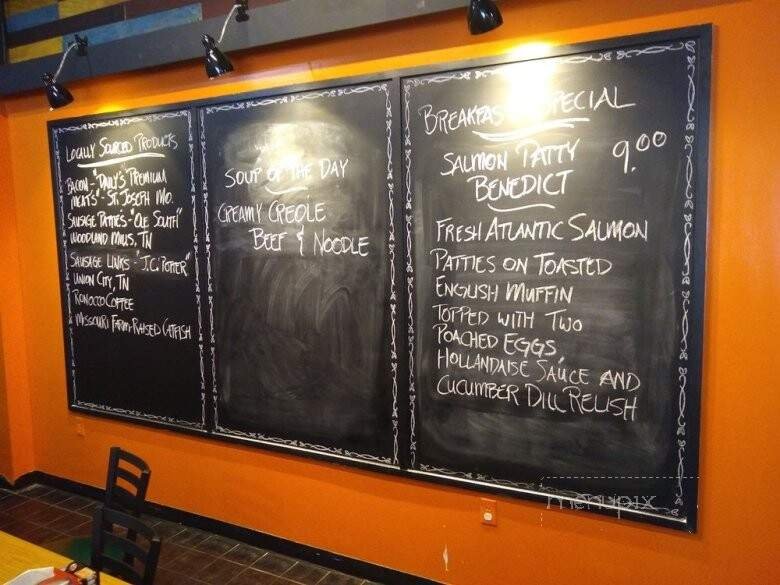 LOCALLY SOURCED PRODUCTS
BACON - "DAILY'S PREMIUM
MEATS" - ST. JOSEPH MO.
SAUSAGE PATTIES - "OLE SOUTH"
WOODLAND MILLS, TN
SAUSAGE LINKS - "J.C. POTTER"
UNION CITY, TN
RONNOCO COFFEE
MISSOURI FARM-RAISED CATFISH
SOUP OF THE DAY
CREAMY CREOLE
BEEF & NOODLE
BREAKFAST SPECIAL
SALMON PATTY 9.00
BENEDICT
FRESH ATLANTIC SALMON
PATTIES ON TOASTED
ENGLISH MUFFIN
TOPPED WITH TWO
POACHED EGGS,
HOLLANDAISE SAUCE AND
CUCUMBER DILL RELISH
menupix